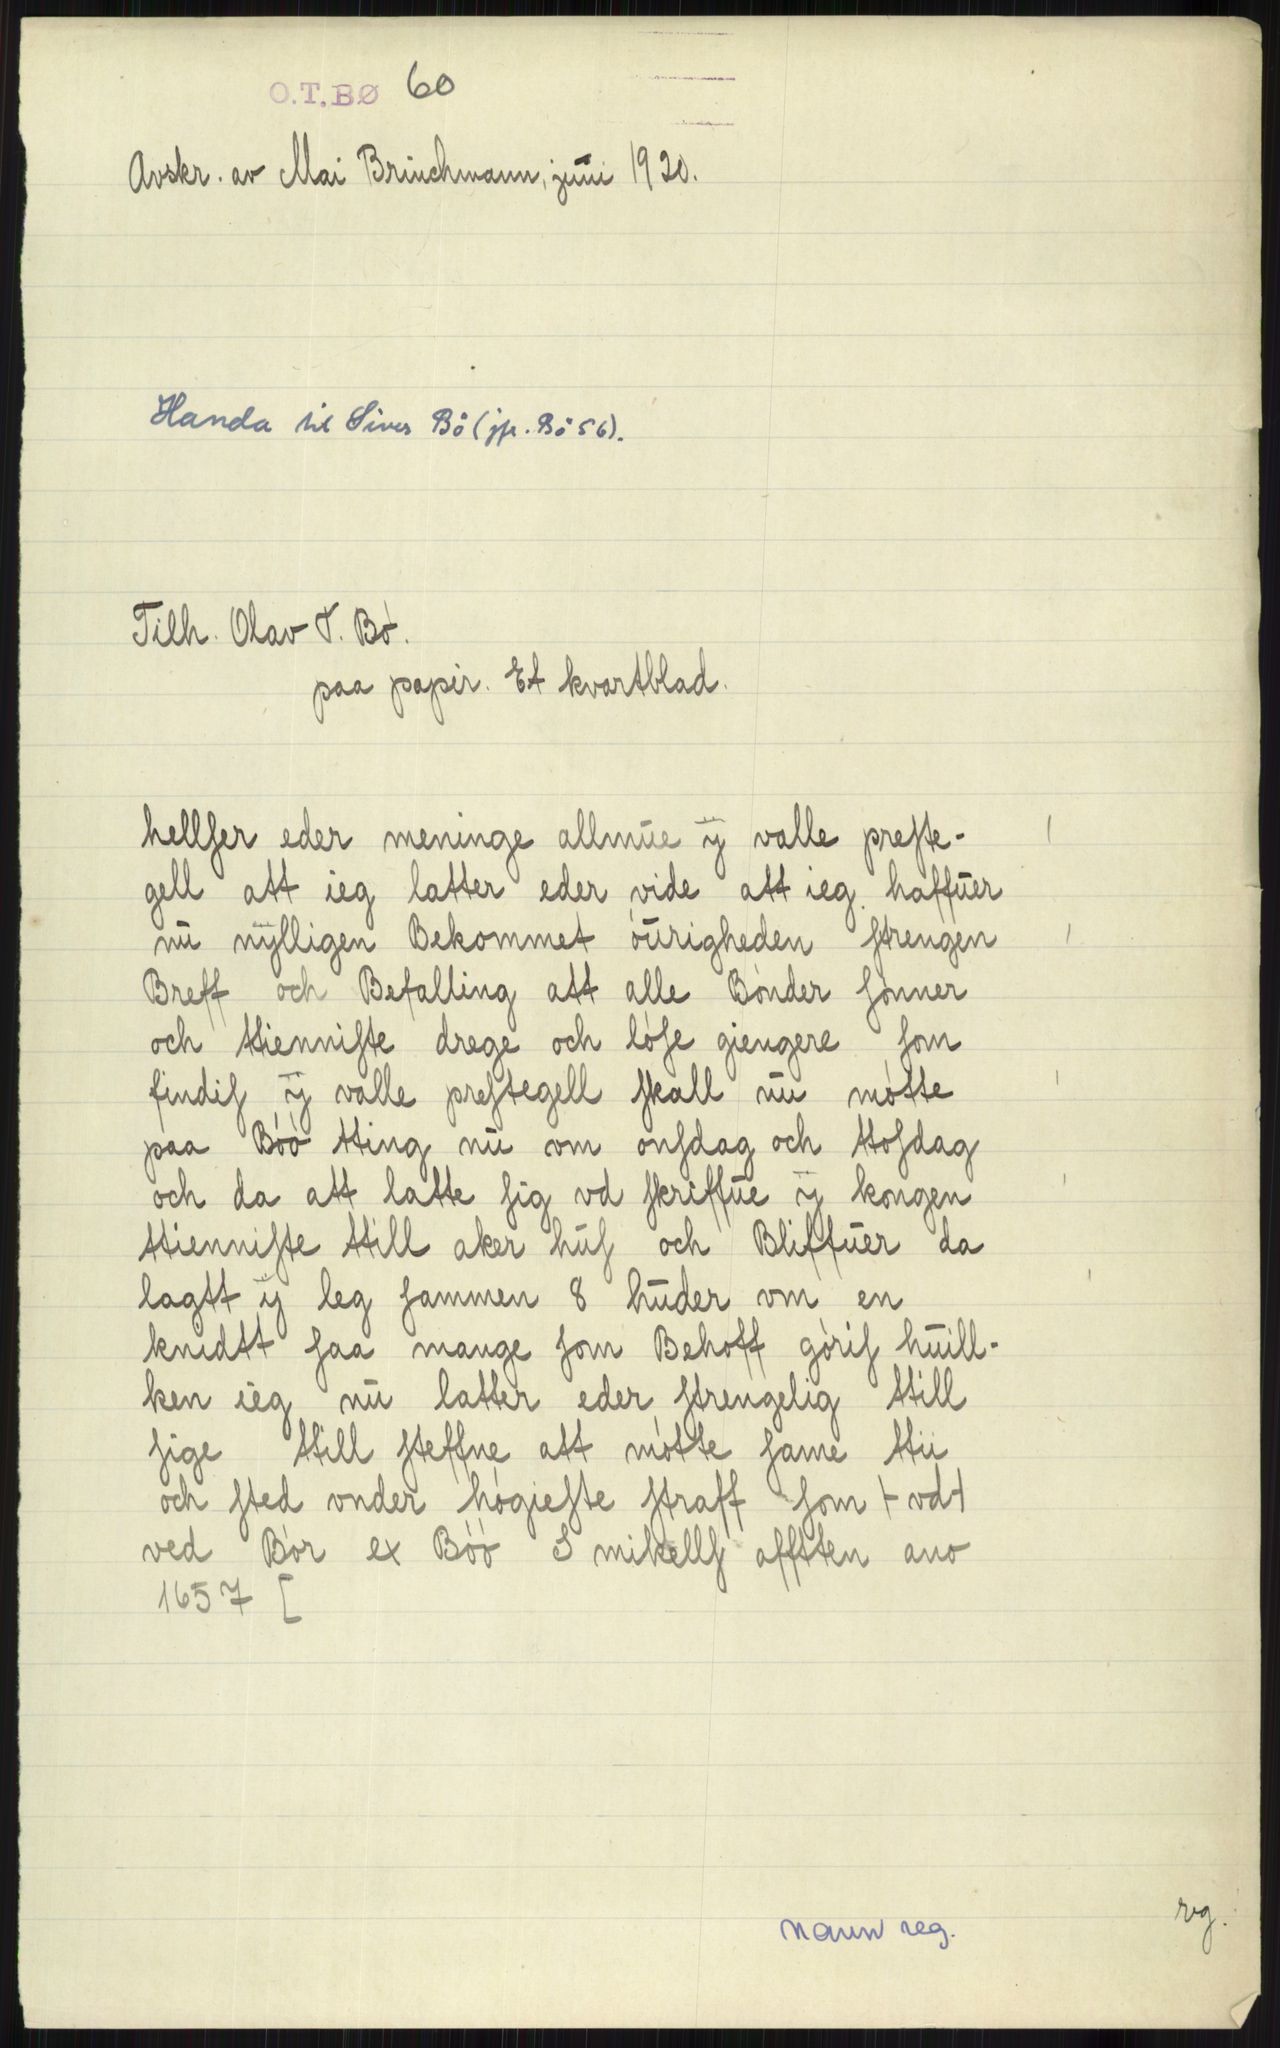 O.T.BØ 60
Avskr. av Mai Brinchmann, juni 1920.
Handa til Sives Bö (jfr. Bö 56).
Tilh. Olav T. Bö.
paa papir. Et kvartblad.
hellſer eder meninge allmūe ÿ valle preſte-
gell att ieg latter eder vide att ieg haffūer
nū nÿlligen Bekommet óūrigheden ſtrengen
Breff och Befalling att alle Bónder ſónner
och ttienniſte drege och lóſe giengere ſom
findiſ ÿ valle preſtegell ſkall nū mótte
paa Bóó tting nū om onſdag och ttoſdag
och da att latte ſig vd ſkriffūe ÿ kongen
ttienniſte ttill aker hūſ och Bliffūer da
lagtt ÿ leg ſammen 8 hūder vm en
knidtt ſaa mange ſom Behoff góriſ hūill-
ken ieg nū latter eder ſtrengelig ttill
ſige ttill ſteffne att mótte ſame ttii
och ſted vnder hógieſte ſtraff ſom ⊢vd⊣
ved Bór ex Bóó S mikellſ afftten ano
1657 [
navn reg.
rg.